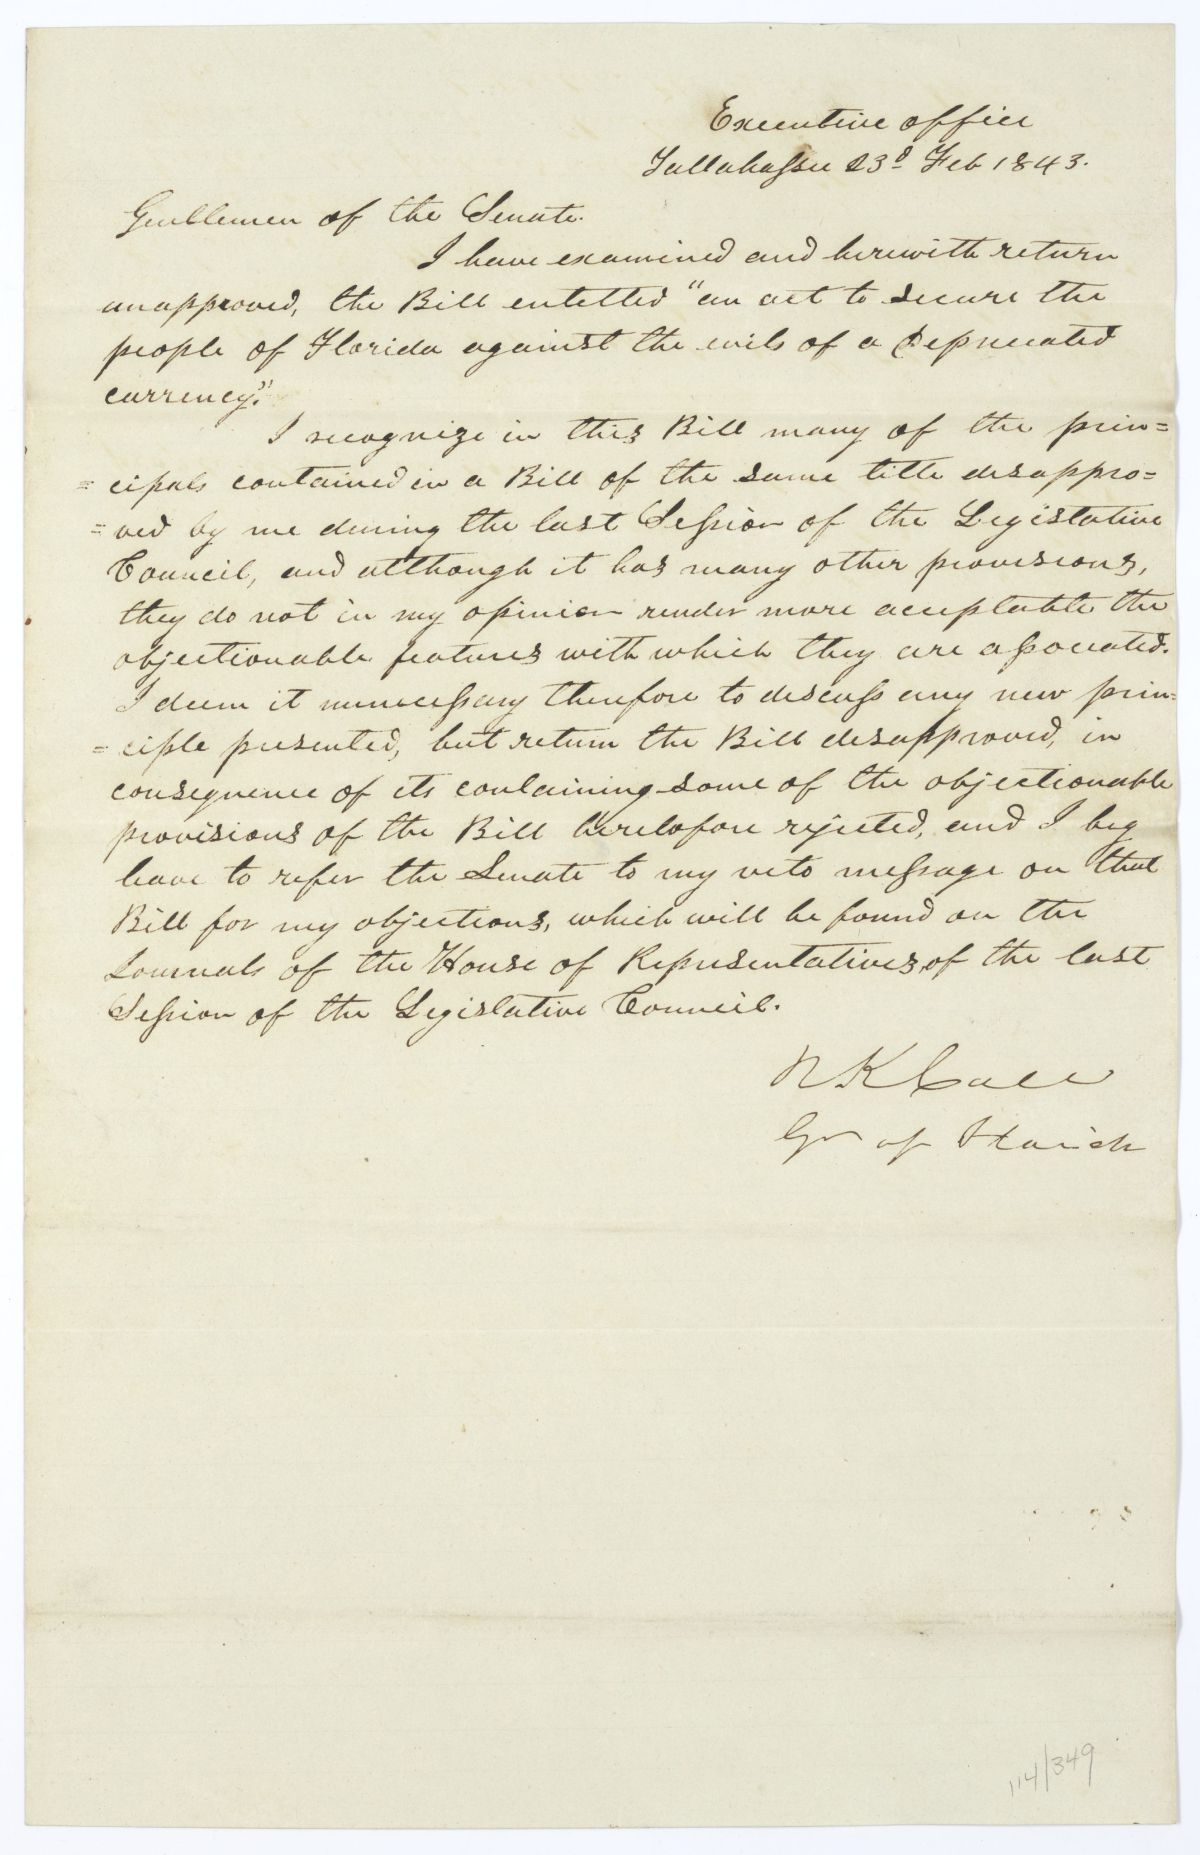 Executive office
Tallahassee 23d Feb 1843.
Gentlemen of the Senate.
I have examined and herewith return
unapproved, the Bill entetled "an act to secure the
people of Florida against the evils of a depreciated
currency."
I recognize in this Bill many of the prin=
=cipals contained in a Bill of the same title disappro=
=ved by me during the last Session of the Legislative
Council, and although it has many other provisions,
they do not in my opinion render more acceptable the
objectionable features with which they are associated.
I deem it unnecessary therefore to discuss any new prin=
=ciple presented, but return the Bill disapproved, in
consequence of its containing some of the objectionable
provisions of the Bill heretofore rejected, and I beg
leave to refer the Senate to my veto message on that
Bill for my objections, which will be found on the
Journals of the House of Representatives, of the last
Session of the Legislative Council.
R K Call
Gov of Florida
114/349